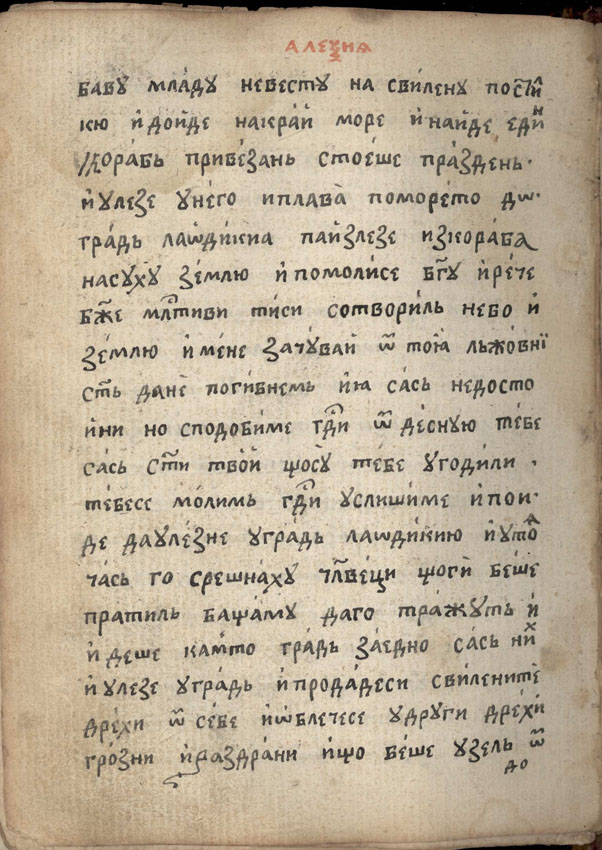 АЛЕѮИѦ
баву мла́ду невесту на свилену пости́
кю и́ до́йде на кра́й море и́ на́йде еди́н
кора́бь приве́зань стое́ше пра́здень·
и́ уле́зе у не́го и плава̀ по мо́рето дѡ·
гра́дь лаѡди́киа па и́злезе из кора́бѧ
на су́ху зе́млю и́ помо́лисе бг҃у и́ ре́че
бж҃е млⷭ҇тиви ти́си сотвори́ль небо и́
зе́млю и́ ме́не зачу́вай ѿ тоꙗ́ льжо́внї
сть да не поги́бнемь и́ ꙗ са́сь недосто
и́ни но сподоби́ме гдⷭ҇и ѿ де́сную те́бе
са́сь ст҃и тво́й що́су те́бе угоди́ли ·
те́бесе мо́лимь гдⷭ҇и усли́шиме и́ пои·
де да уле́зне у гра́дь лаѡди́кию и́ у тоѧ́
ча́сь го сре́шнаху чл҃ве́ци що ги́ бе́ше
пра́тиль баща́му да го тра́жуть и́
и́деше ка́мто гра́дь зае́дно са́сь ни́х
и́ уле́зе у гра́дь и́ прода́деси сви́лените
дре́хи ѿ се́бе и́ ѡ́блечесе у дру́ги дре́хи́
гро́зни и́ ра́здрани и́ що бе́ше у́зель ѿ
до